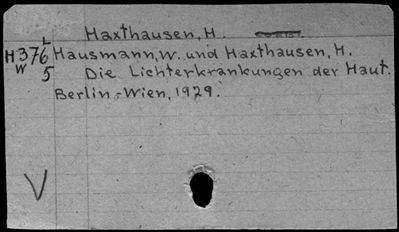 Haxthausen, H.
L
H 376 Hausmann, W. und Haxthausen, H.
W 5 Die Lichterkrankungen der Haut.
Berlin-Wien, 1929.
V